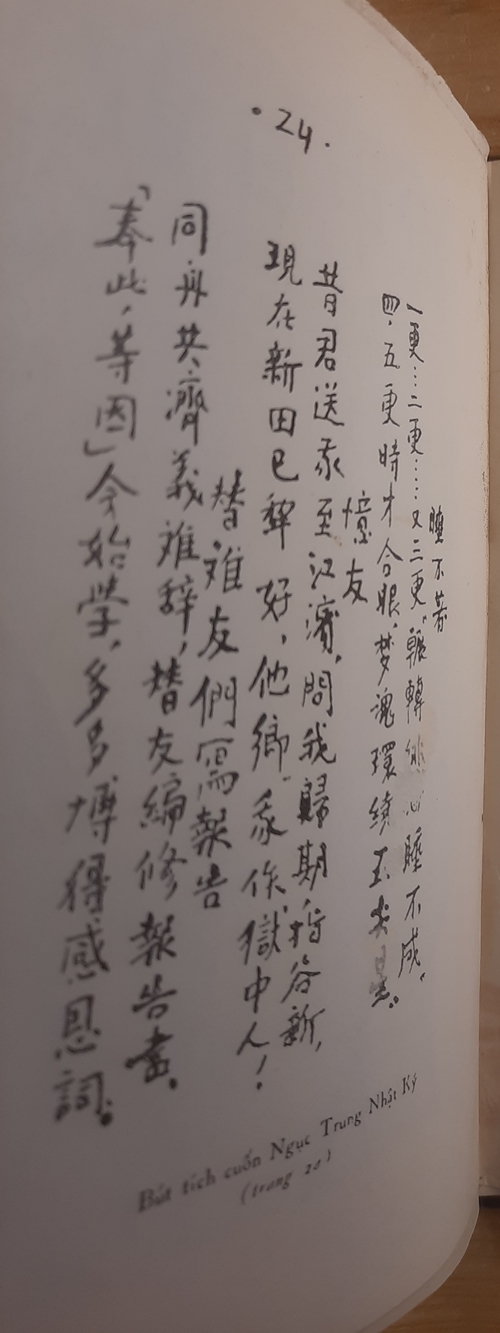 • 24 •
睡不着
一更…二更……又三更，輾轉徘心睡不成，
四、五更時才合眼，梦魂環繞五尖星。
憶友
昔君送我至江濱，問我歸期指谷新，
現在新田已犂好，他鄉我作獄中人！
替难友們寫報告
同舟共濟義难辞，替友編修報告書。
「奉此，等因」今始学，多多博得感恩詞。
Bút tích cuốn Ngục Trung Nhật Ký
(trang 20)